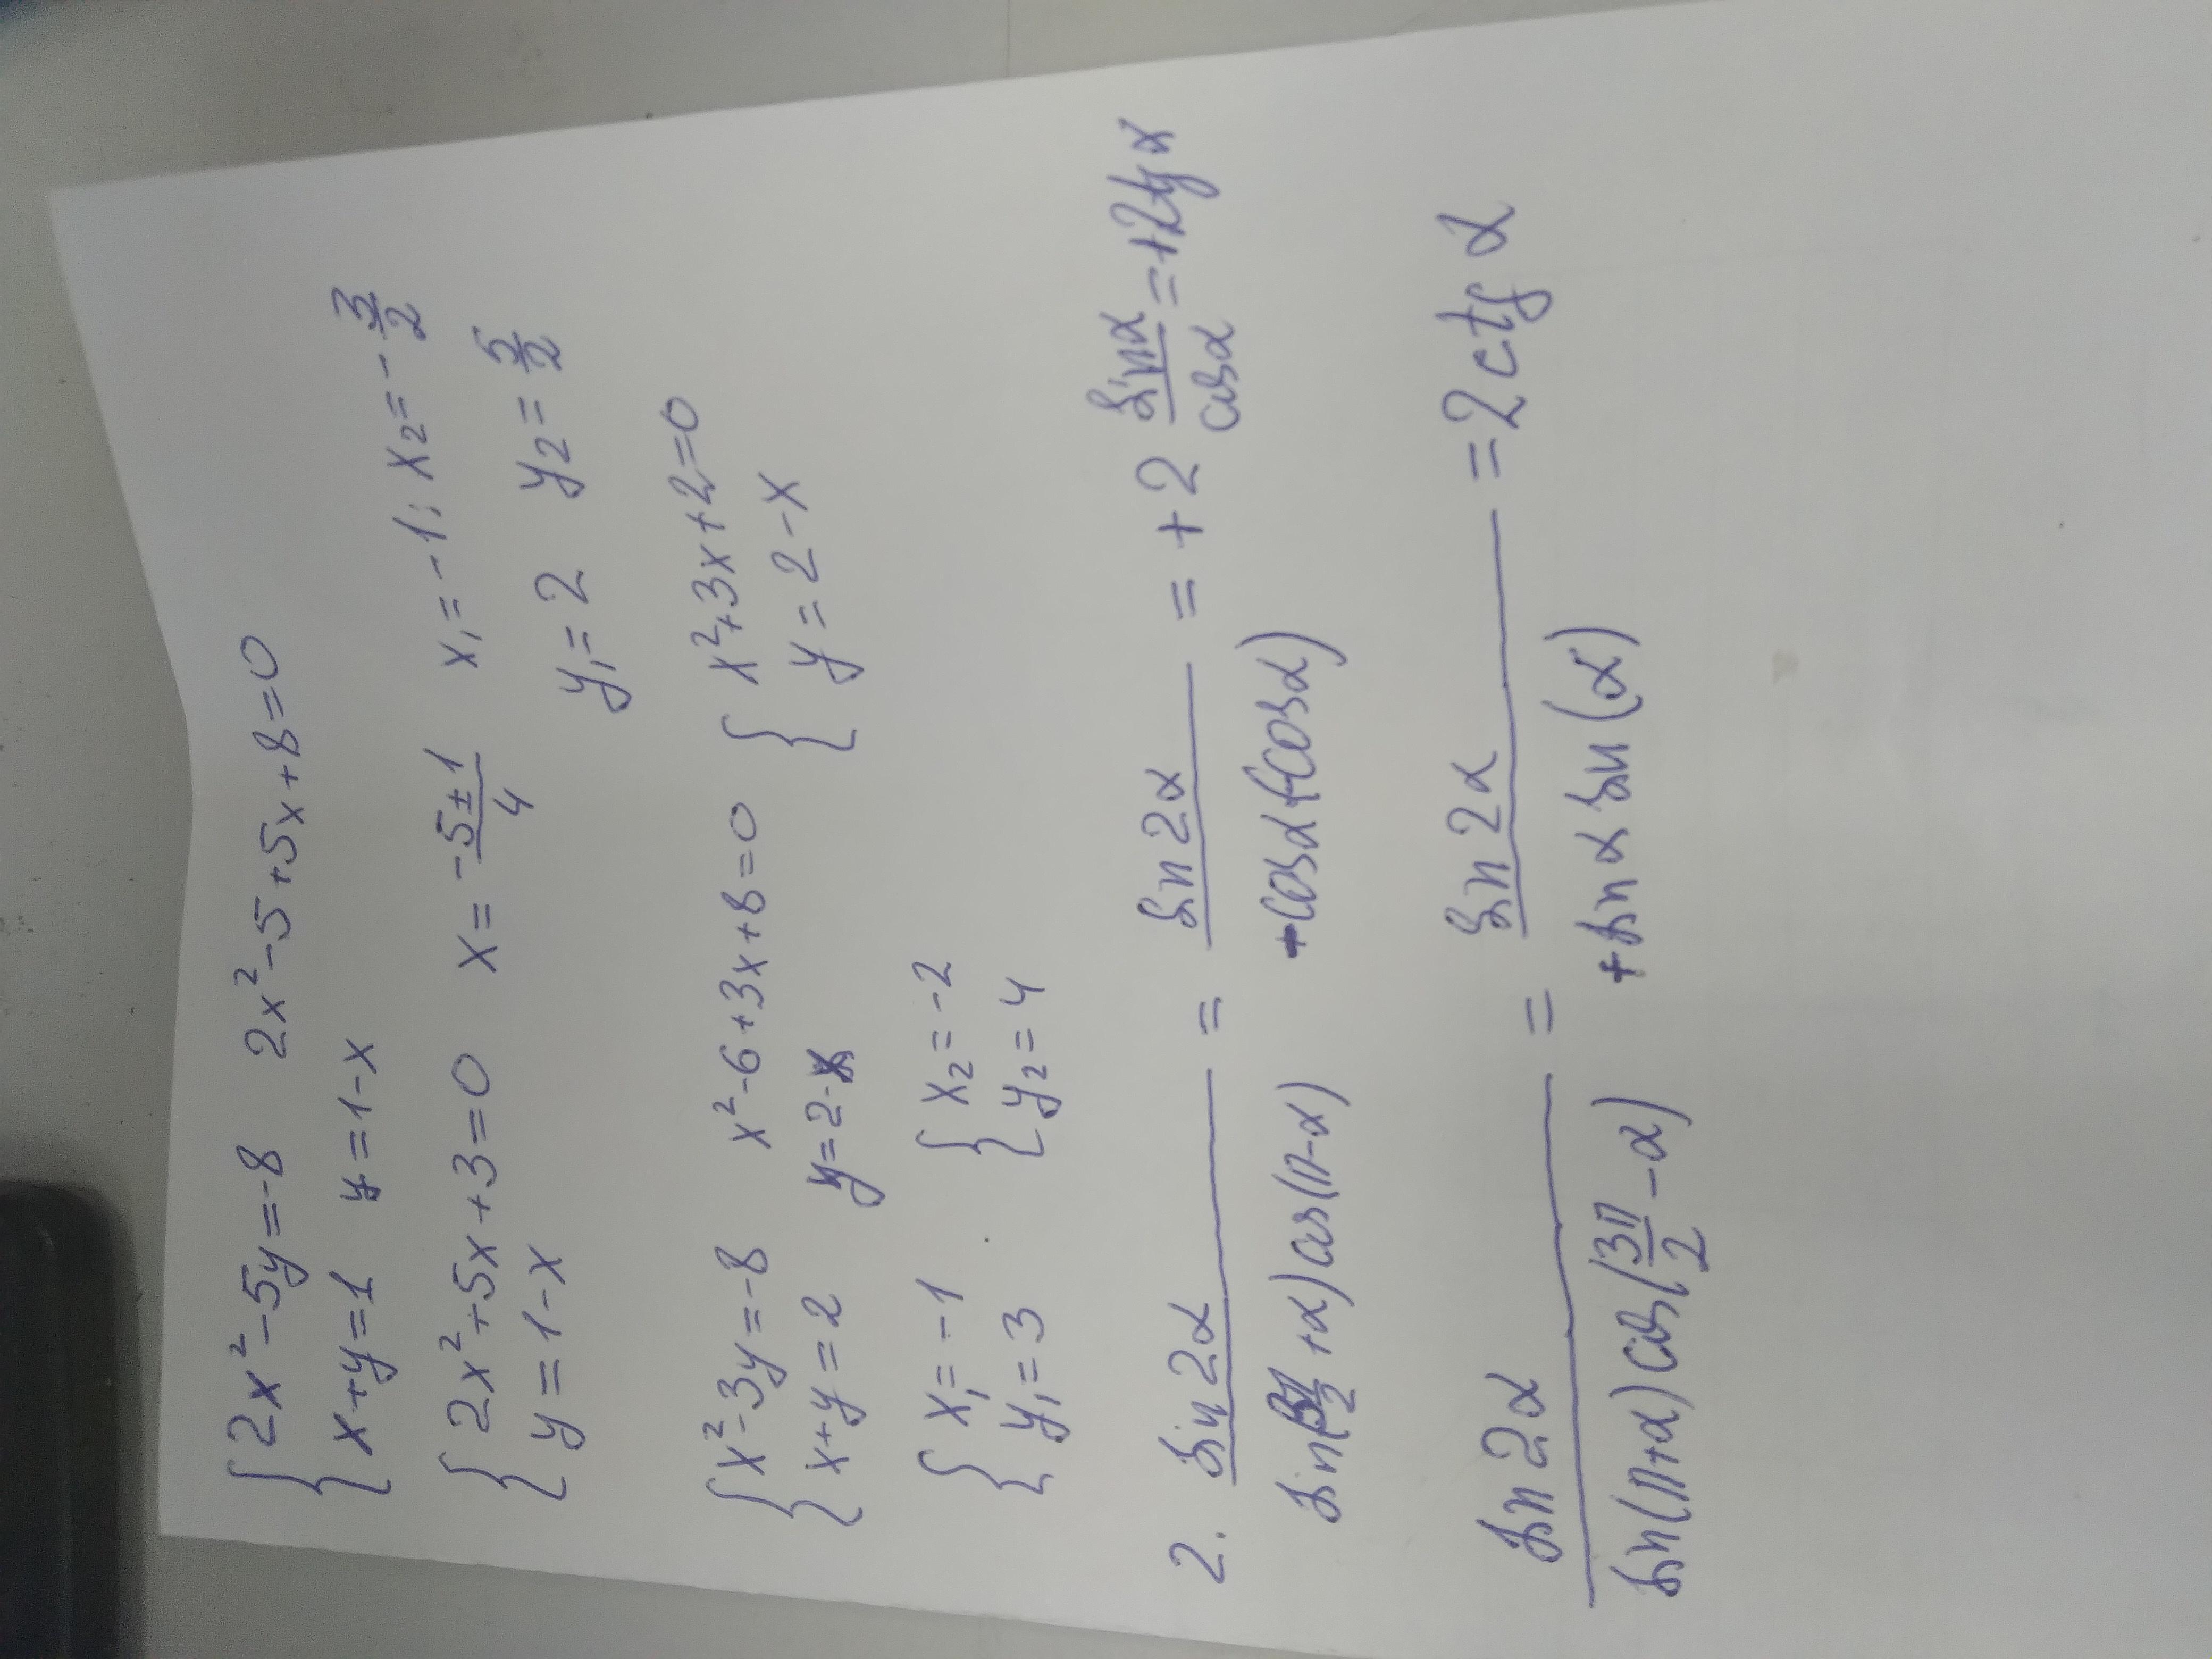 { 2x² - 5y = -8    2x² - 5 + 5x + 8 = 0
x + y = 1    y = 1 - x
{ 2x² + 5x + 3 = 0    x = (-5 ± 1)/4    x₁ = -1; x₂ = -3/2
y = 1 - x    y₁ = 2    y₂ = 5/2
{ x² - 3y = -8    x² - 6 + 3x + 8 = 0    { x² + 3x + 2 = 0
x + y = 2    y = 2 - x    y = 2 - x
{ x₁ = -1    { x₂ = -2
y₁ = 3    y₂ = 4
2. sin 2α / (sin( /2 + α) cos(π - α)) = sin 2α / (-cosα(-cosα)) = +2 sinα/cosα = +2tgα
sin 2α / (sin(π + α) cos(3π/2 - α)) = sin 2α / (+sin α sin(α)) = 2ctg α